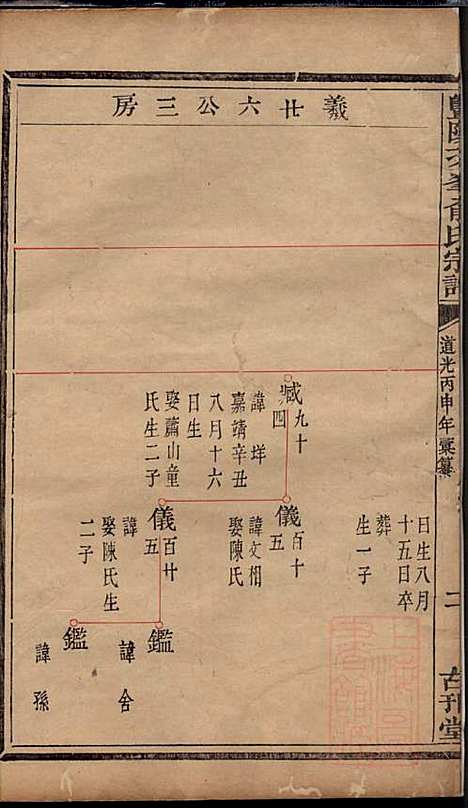 羲廿六公三房
暨陽次峯俞氏宗譜
道光丙申年彙纂
二
日生八月
十五日卒
葬
生一子
臧九十四
諱垟
嘉靖辛丑
八月十六
日生
娶蕭山童
氏生二子
儀百十五
諱文相
娶陳氏
儀百廿五
諱
娶陳氏生
二子
鑑
諱舍
鑑
諱孫